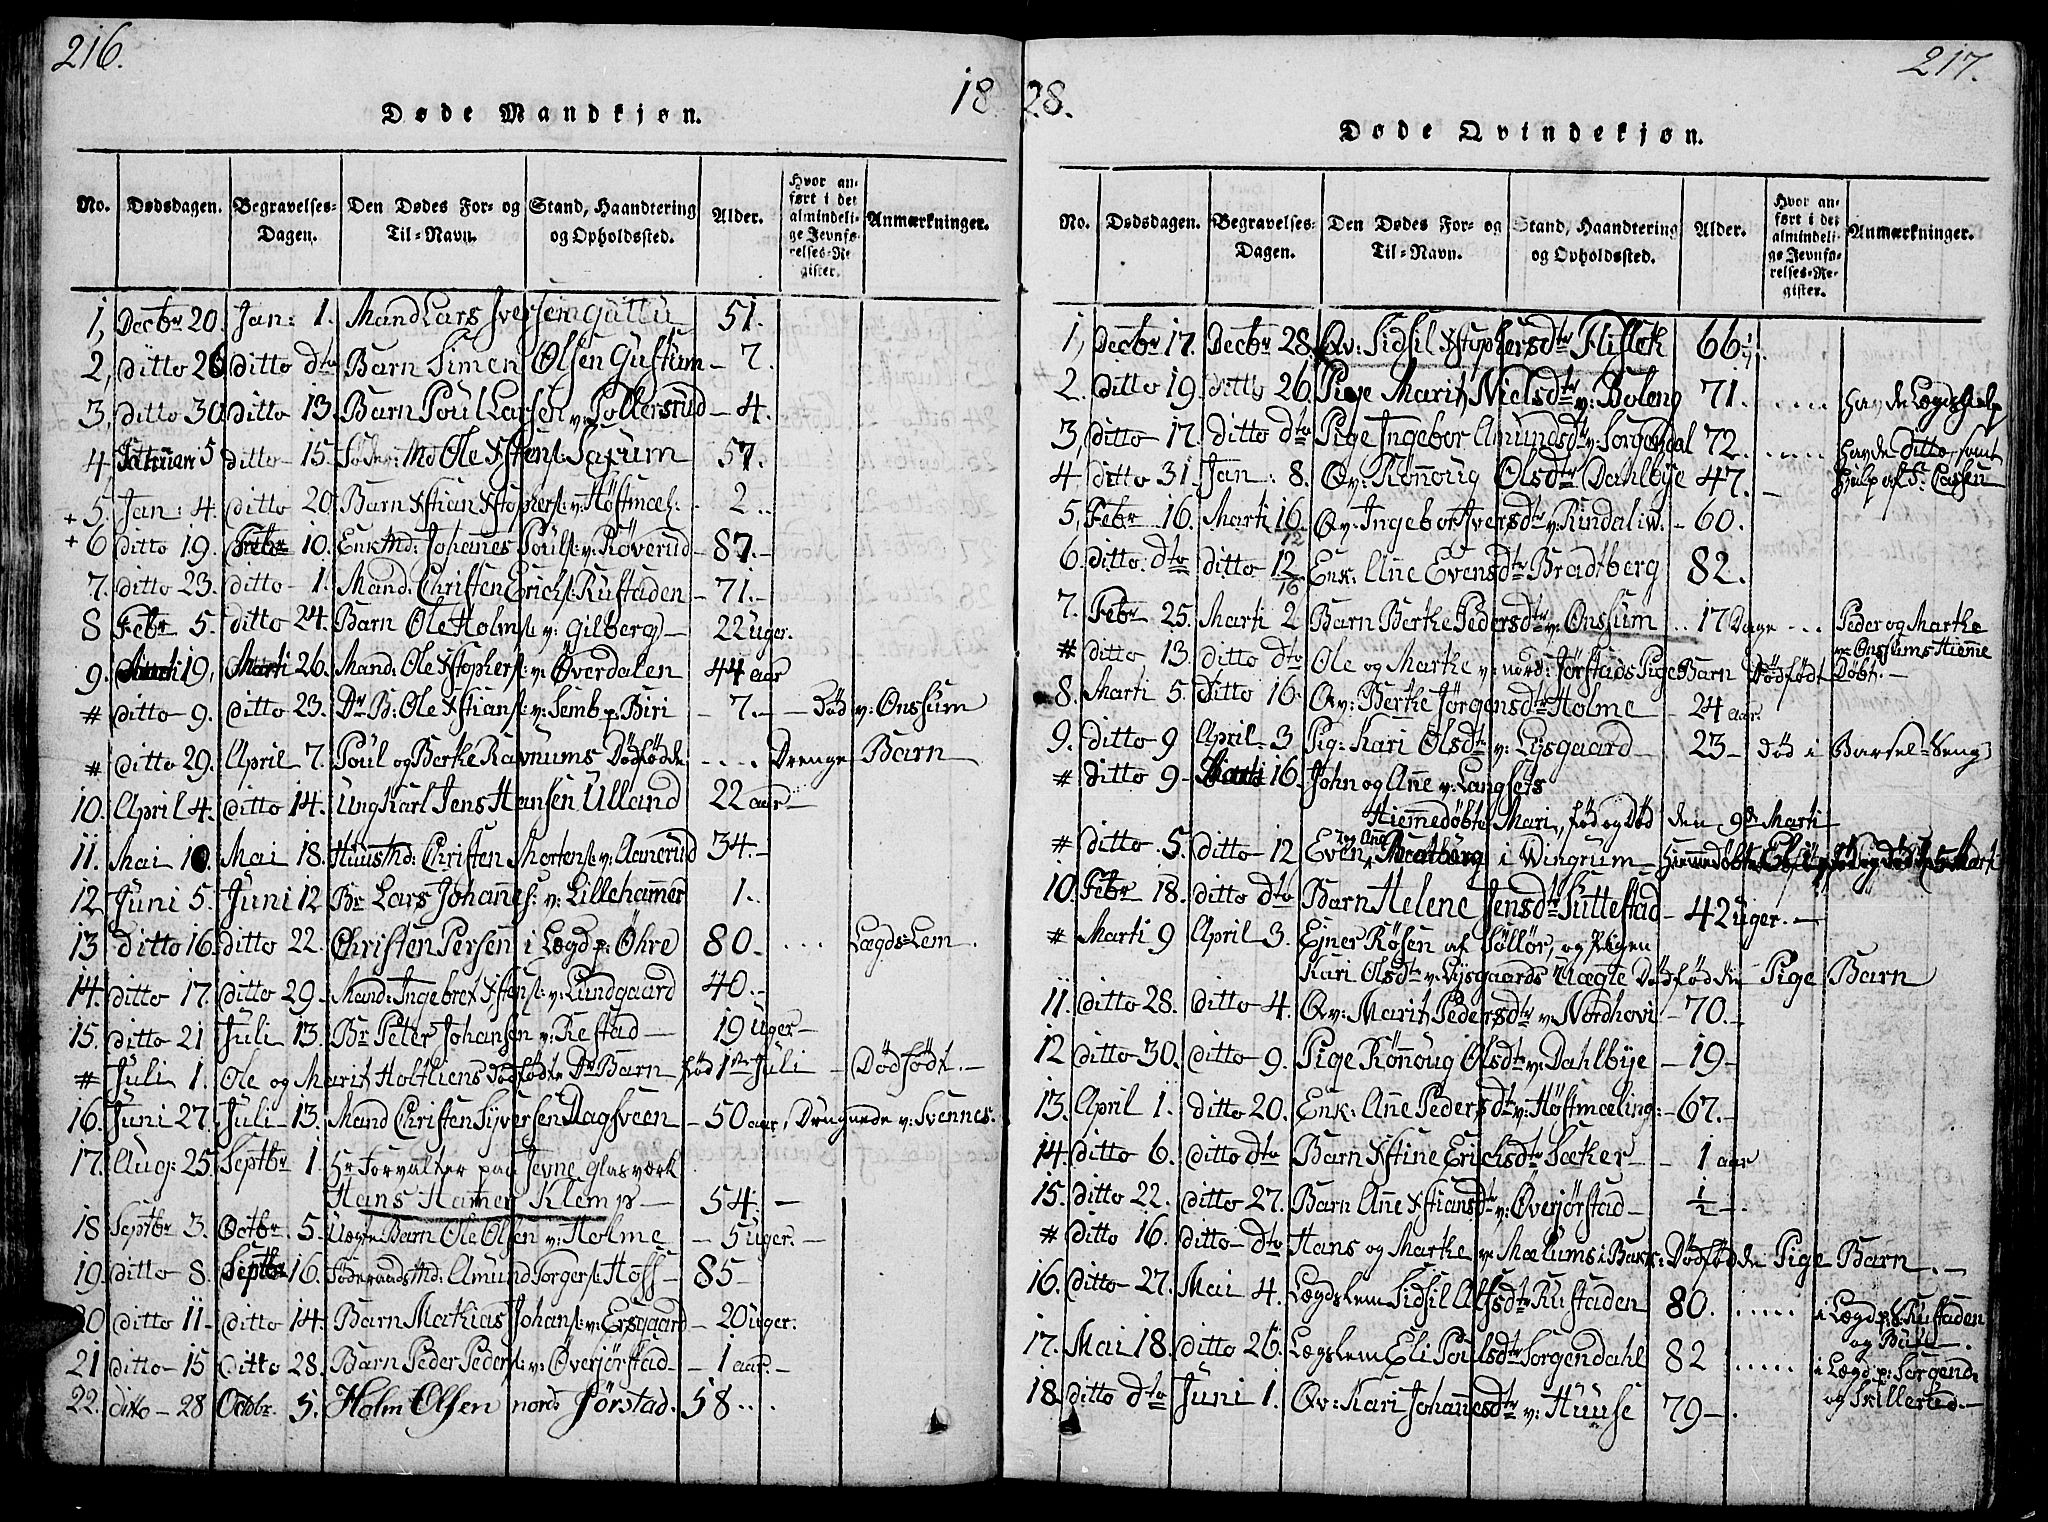 216.
18
Døde Mandkjøn.
No. Dødsdagen. Begravelses-Dagen. Den Dødes For- og Til-Navn. Stand, Haandtering og Opholdssted. Alder. Hvor anført i det almindelige Jevnførelses-Register. Anmærkninger.
1, Decbr 20. Jan: 1. Mand Lars Iversen Guttu 51.
2, ditto 26 ditto dto Barn Simen Olsen Gustum – 7.
3, ditto 30 ditto 13. Barn Poul Larsen v: Pollersrud – 4.
4 5 ditto – 15. Ole Xstens: Saxum 57.
+ 5. Jan: 4. ditto 20 Barn Xstian Xstophers: v: Høstmæl: – 2..
+ 6 ditto 19. Febr 10. Enk Md: Johañes Pouls: v: Røverud – 87. –
7. ditto 23. ditto – 1. Mand: Christen Erichs: Rustaden – 71. –
8 Febr 5. ditto 24. Barn Ole Holms: v: Gilberg – 22 uger.
9. Marti 19, Marti 26. Mand: Ole Xstophers: v: Øverdalen – 44 aar
# ditto – 9. ditto 23. Dr B: Ole Xstians: v: Semb p. Biri – 7. – Død v: Onssum
# ditto 29. April 7. Poul og Berke Ravnums Dødfødde .... Drenge Barn
10. April 4. ditto 14. Ungkarl Jens Hansen Ulland 22 aar –
11. Mai 10. Mai 18. Huusmd: Christen Mortens: v: Aanerud 34. –
12 Juni 5. Juni 12 Br Lars Johañes: v: Lillehamer 1.
13 ditto 16. ditto 22. Christen Persen i Lægd p: Ohre 80 – ... Lægds-Lem.
14. ditto 17. ditto 29 – Mand: Ingebret Xstens: v: Lundgaard 40. –
15. ditto 21 Juli 13. Br Peter Johansen v: Restad – 19 Uger –
# Juli 1. Ole og Marit Holtliens Dødfødte Dr Barn fød 1ste Juli – Dødfødt. –
16. Juni 27. Juli 13. Mand Christen Syversen Dagsveen – 50 aar, Druknede v: Svennes.
17. Aug: 25. Septbr 1. Hr Forvalter paa Jevne Glasværk
Hans Hamer Klemp – 54. –
18 Septbr 3. Octbr. 5. Uægte Barn Ole Olsen v: Holme – 5 uger. –
19. ditto 8. Septbr 16. Amund Sorgers: Hoff – 85 –
20 ditto 11 – ditto 14. Barn Mathias Johans: v: Ersgaard – 20 uger:
21 ditto – 15 ditto 28. Barn Peder Peders: v: Øverjørstad – 1 aar. –
22. ditto – 28 Octobr. 5. Holm Olsen nord: Jörstad. 58 ...
28.
217.
Døde Qvindekjøn.
No. Dødsdagen. Begravelses-Dagen. Den Dødes For- og Til-Navn. Stand, Haandtering og Opholdssted. Alder. Hvor anført i det almindelige Jevnførelses-Register. Anmærkninger.
1, Decbr 17. Decbr 28. Qv: Sidsil Xstophersdtr Flislek 66
2. ditto 19. ditto 26. Pige Marit Nielsdtr v: Boleng 71. .... havde Lægdshielp
3, ditto 17. ditto dto Pige Ingebor Amundsdtr v: Sorgendal 72. .... havde ditto, samt
4 ditto 31. Jan: 8. Qv: Røñoug Olsdtr Dahlbye 47. – hielp af F: Cassen
5, Febr 16. Marti 16. Qv: Ingebor Iversdtr v: Rindaliw. – 60.
12
6. ditto. dto ditto 12 Enk: Añe Evensdtr Bradtberg 82.
16
7. Febr 25. Marti 2 Barn Berke Pedersdtr v: Onssum .. 17 Dage ... Peder og Marthe
v: Onssums Hieme
# ditto 13. ditto dto Ole og Marthe v: nord: Jørstads Pige Barn Dødfødt Døbt. –
8. Marti 5. ditto 16. Qv: Berke Jørgensdtr Holme – 24 aar.
9. ditto 9 April – 3 Pig: Kari Olsdtr v: Lysgaard – 23 – død i Barsel-Seng
# ditto 9 – Marti 16. John og Añe v: Langsets
Hiemedøbte Mari, fød og Død den 9de Marti
# ditto 5. ditto 12 Even i Wingrum – Hiemedøbte
10. Febr 18. ditto dto Barn Helene Jensdtr Suttestad – 42 uger. –
# Marti 9 April 3. Ejner Røsen af Sollør, og Pigen
Kari Olsdtr v: Lysgaards Uægte Dødfødde Pige Barn
11. ditto 28. ditto 4. Qv: Marit Pedersdtr v: Nordhovi – 70. –
12 ditto 30. ditto 9. Pige Røñoug Olsdtr v: Dahlbye – 19 –
13. April 1. ditto 20. Enk: Añe Pedersdtr v: Høstmæling: – 67. –
14. ditto 6. ditto dto Barn Xstine Erichsdtr Sæker – – 1 aar
15. ditto 22. ditto 27. Barn Añe Xstiansdtr v: Øverjørstad – 1/2 –.
# ditto 16. ditto – dto Hans og Marthe v: Mælums i Bakk: Dødfødde Pige Barn. –
16. ditto 27. Mai 4. Lægdslem Sidsil Alfsdtr Rustaden 80. ..... i Lægd p: Rustaden
og Bule –.
17. Mai 18. ditto 26. Lægslem Eli Poulsdtr Sorgendahl 82 ..... i Lægd p: Sorgend:
18. ditto dto Juni 1. Qv: Kari Johañesdtr v: Huuse 79 –. og Skillerted. –